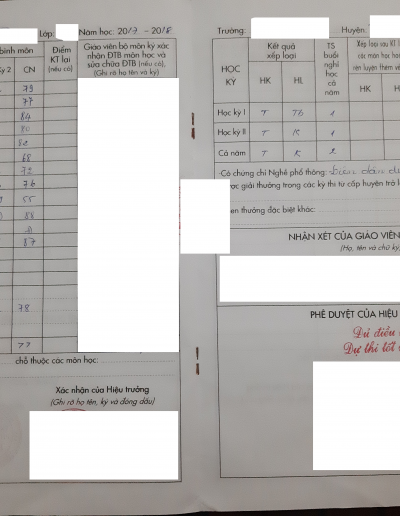 Lớp:
Năm học: 2017 - 2018
bình môn
Điểm KT lại (nếu có)
Giáo viên bộ môn ký xác nhận ĐTB môn học và sửa chữa ĐTB (nếu có), (Ghi rõ họ tên và ký)
Kỳ 2
CN
79
77
84
80
82
68
72
76
55
88
87
78
chỗ thuộc các môn học:
Xác nhận của Hiệu trưởng
(Ghi rõ họ tên, ký và đóng dấu)
Trường:
Huyện:
HỌC KỲ
Kết quả xếp loại
HK
HL
TS buổi nghỉ học cả năm
Xếp loại sau KT
các môn học hoặc
rèn luyện thêm về
HK
Học kỳ I
T
Tb
1
Học kỳ II
T
K
1
Cả năm
T
K
2
-Có chứng chỉ Nghề phổ thông:
ược giải thưởng trong các kỳ thi từ cấp huyện trở
en thưởng đặc biệt khác:
NHẬN XÉT CỦA GIÁO VIÊN
(Họ, tên và chữ ký)
PHÊ DUYỆT CỦA HIỆU
Đủ điều
Dự thi tốt